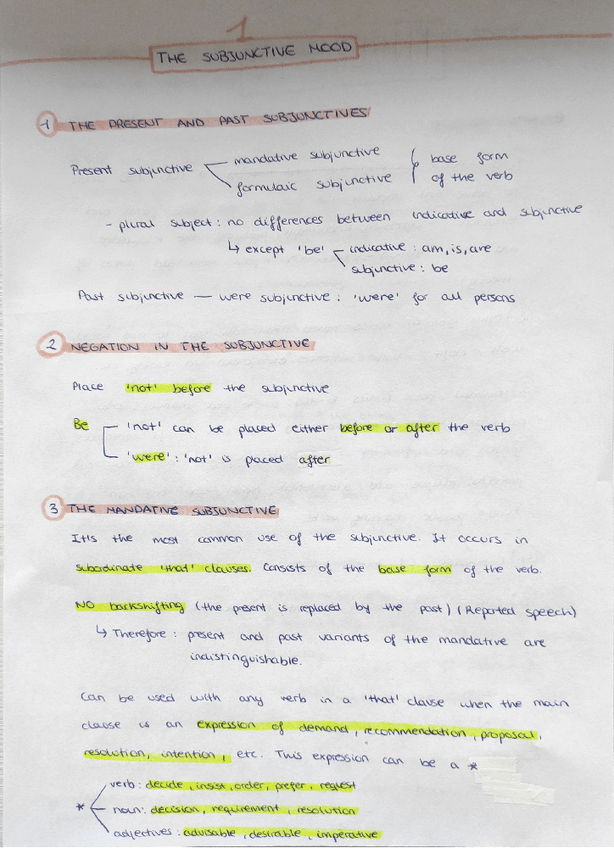 1
THE SUBJUNCTIVE MOOD
1 THE PRESENT AND PAST SUBJUNCTIVES
Present subjunctive
mandative subjunctive
formulaic subjunctive
base form
of the verb
- plural subject: no differences between indicative and subjunctive
↳ except 'be'
indicative: am, is, are
subjunctive: be
Past subjunctive — were subjunctive: 'were' for all persons
2 NEGATION IN THE SUBJUNCTIVE
Place 'not' before the subjunctive
Be
'not' can be placed either before or after the verb
'were': 'not' is placed after
3 THE MANDATIVE SUBJUNCTIVE
It's the most common use of the subjunctive. It occurs in
subordinate 'that' clauses. Consists of the base form of the verb.
NO backshifting (the present is replaced by the past) (Reported speech)
↳ Therefore: present and past variants of the mandative are
indistinguishable.
Can be used with any verb in a 'that' clause when the main
clause is an expression of demand, recommendation, proposal,
resolution, intention, etc. This expression can be a *
* verb: decide, insist, order, prefer, request
noun: decision, requirement, resolution
adjectives: advisable, desirable, imperative